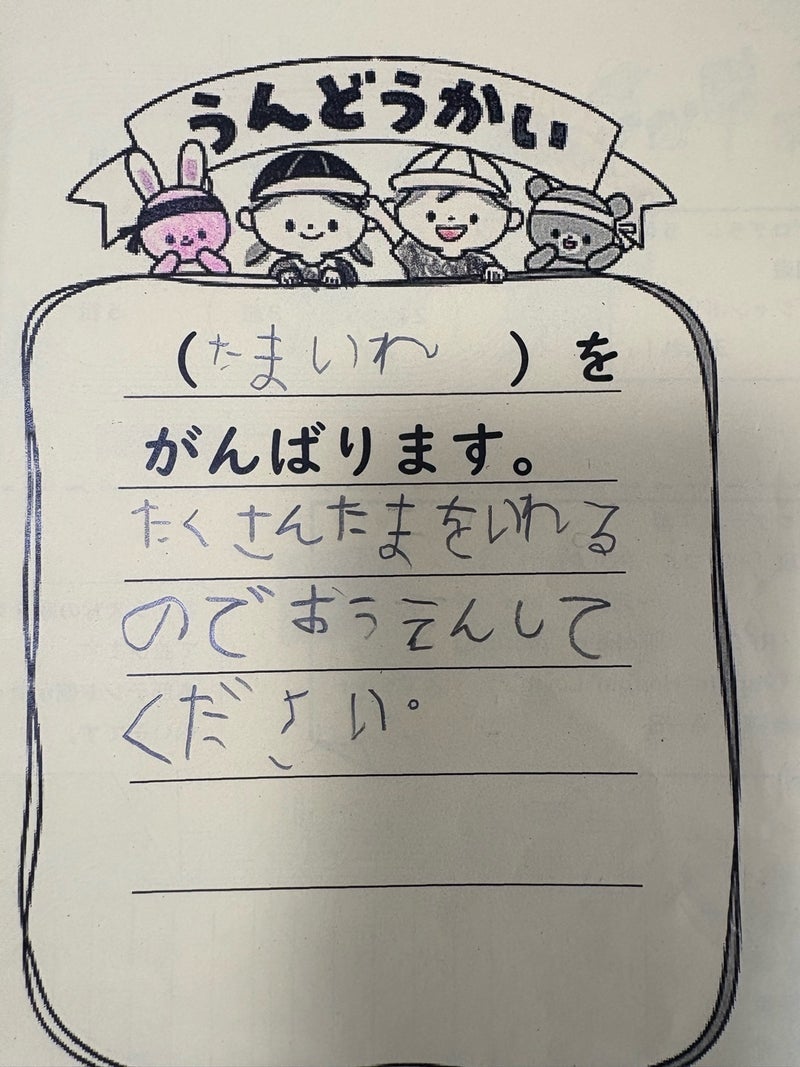 うんどうかい
(たまいれ)を
がんばります。
たくさんたまをいれる
のでおうえんして
ください。